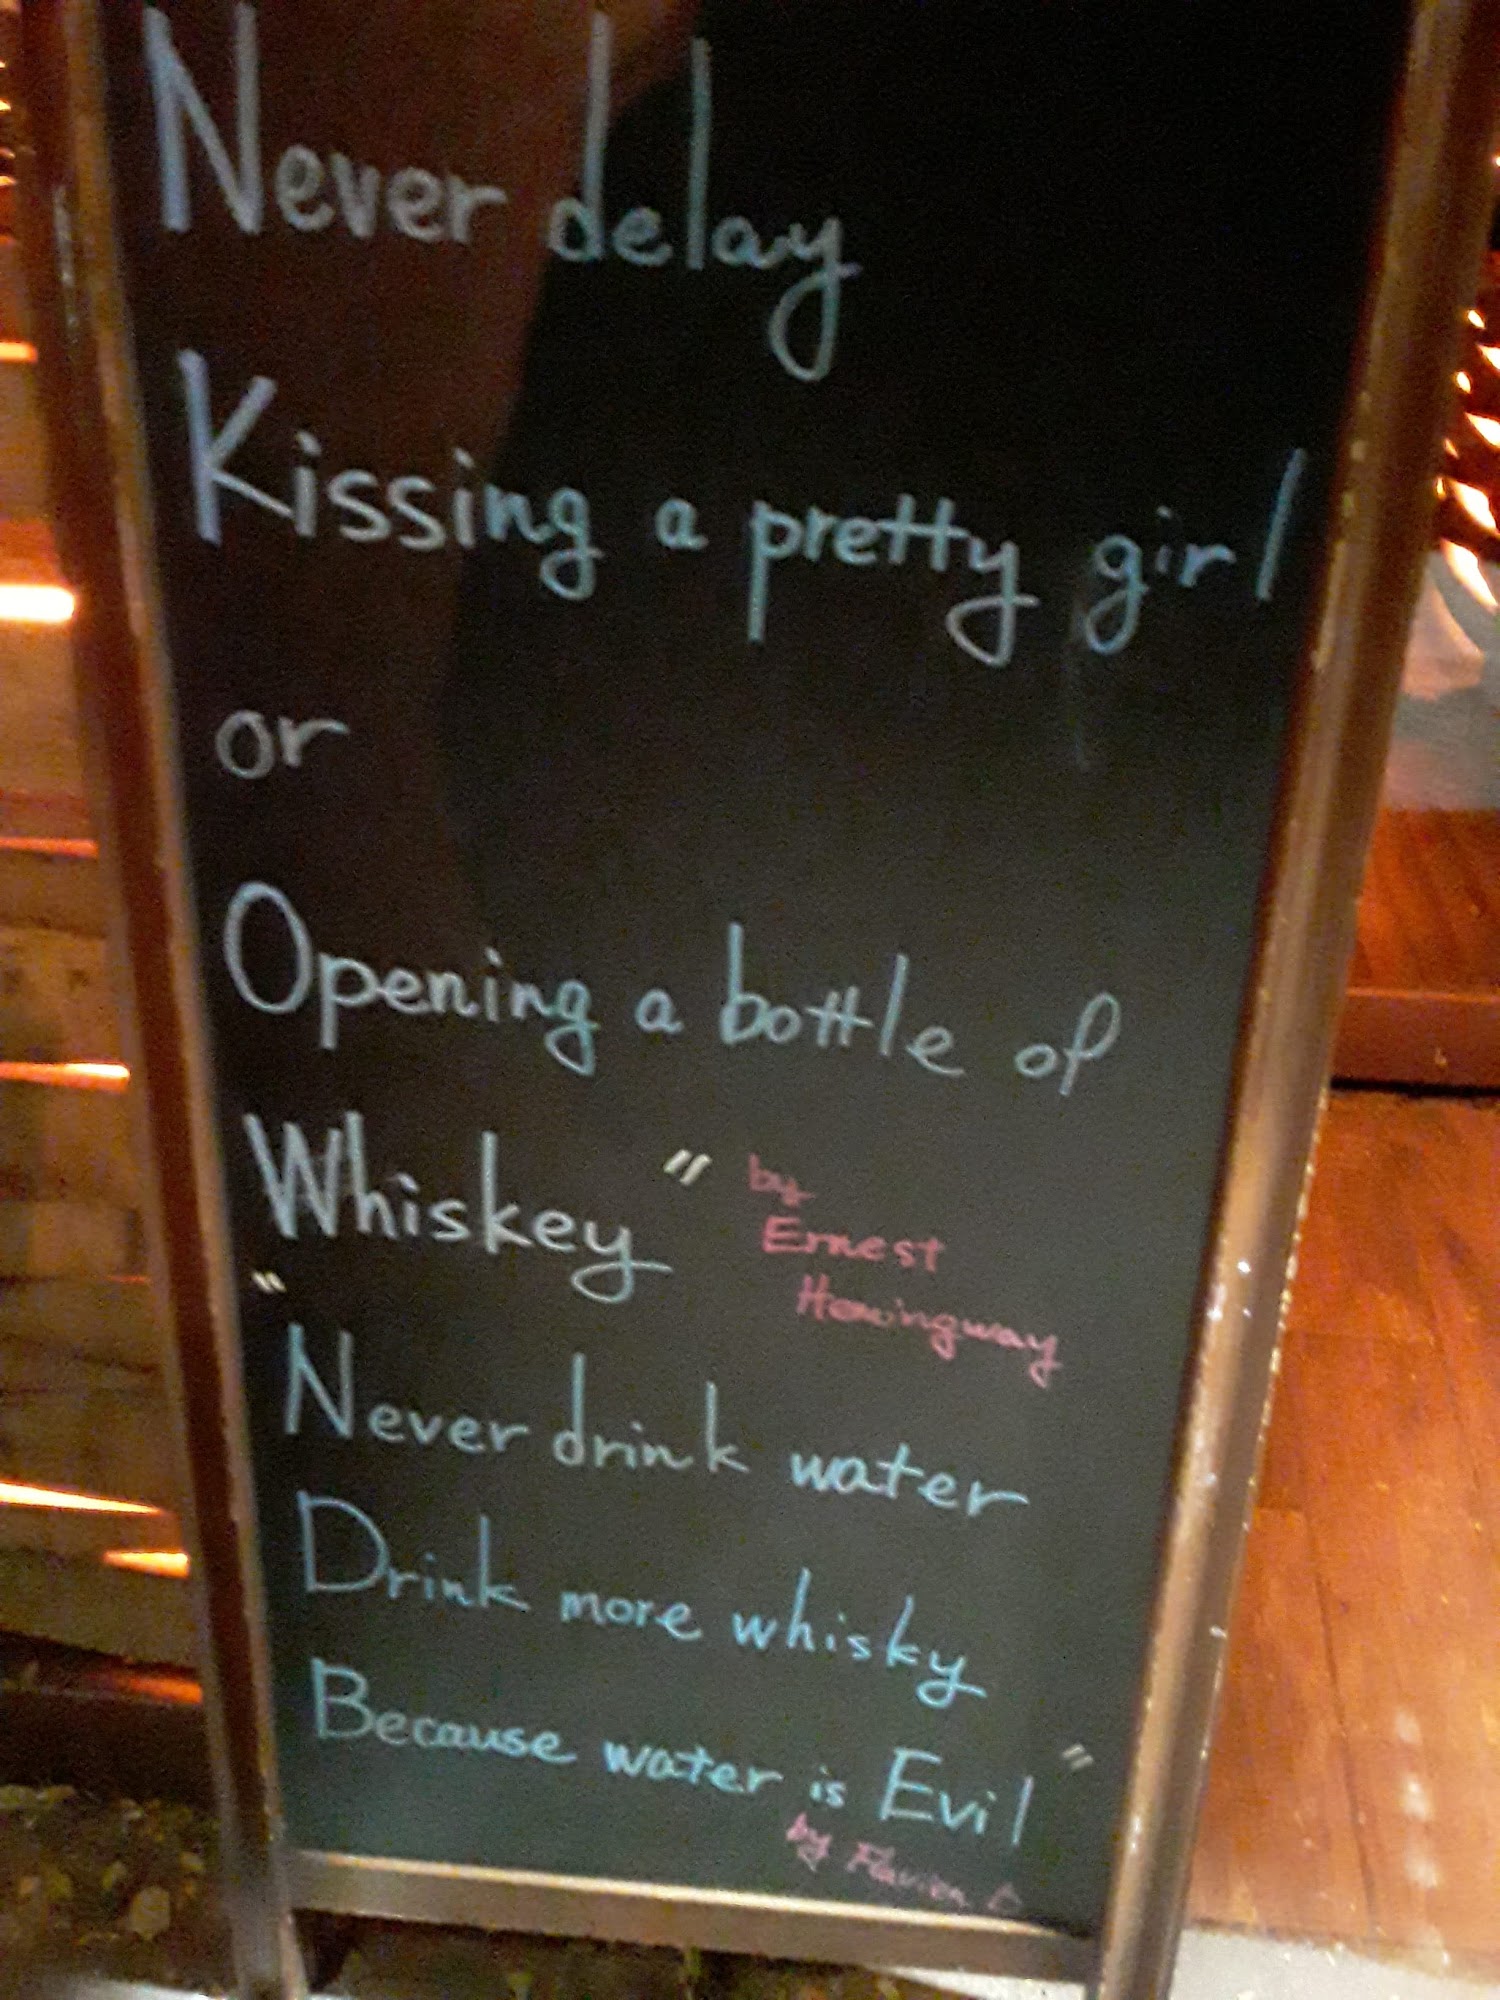 Never delay
Kissing a pretty girl
or
Opening a bottle of
Whiskey" by
Ernest
Hemingway
"Never drink water
Drink more whisky
Because water is Evil"
by Flavien